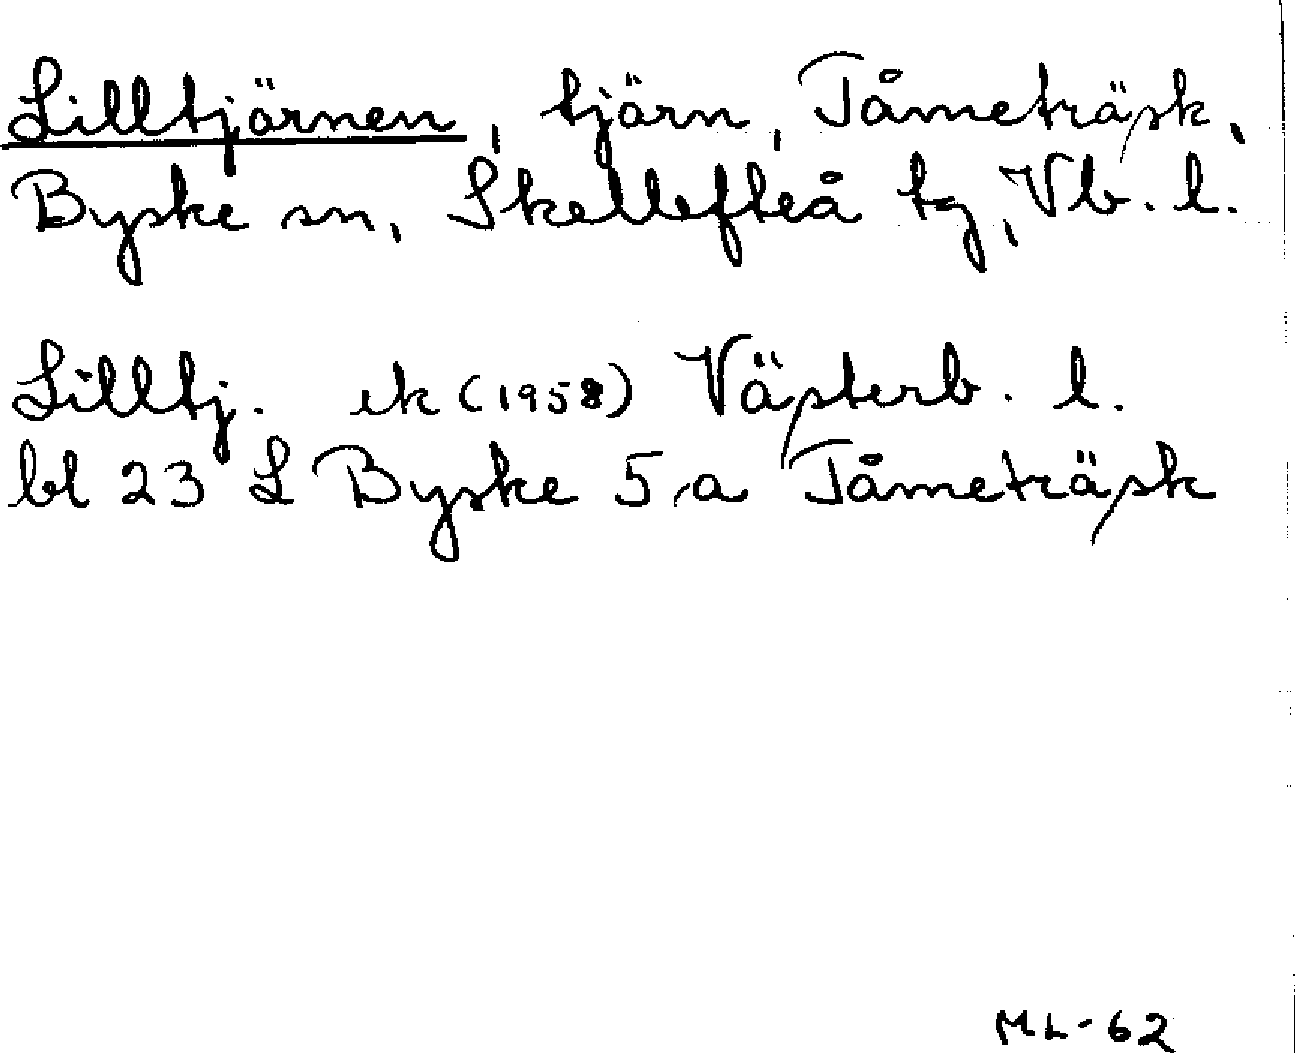 Lilltjärnen, tjärn, Tåmeträsk,
Byske sn, Skellefteå tg, Vb. l.
Lilltj. ek (1958) Västerb. l.
bl 23 L Byske 5,a Tåmeträsk
ML-62